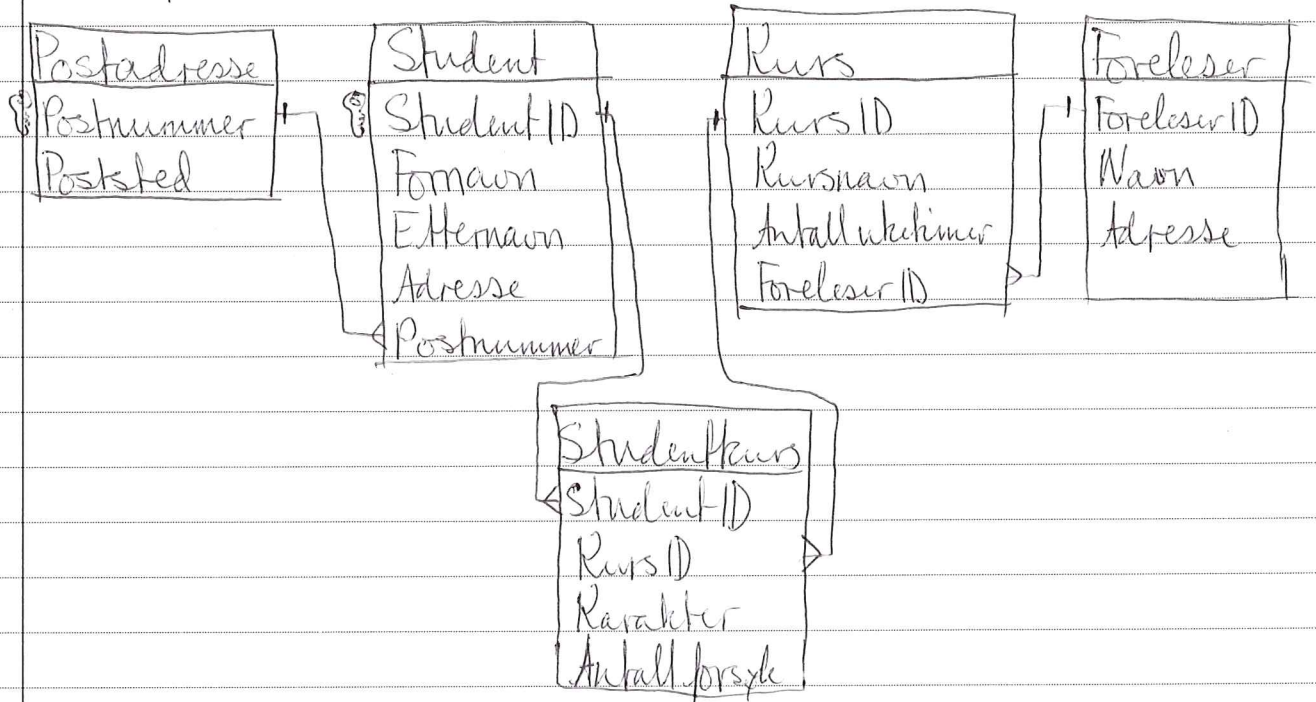 Postadresse
Postnummer
Poststed
Student
StudentID
Fornavn
Etternavn
Adresse
Postnummer
Kurs
KursID
Kursnavn
Antall uketimer
ForeleserID
Foreleser
ForeleserID
Navn
Adresse
Studentkurs
StudentID
KursID
Karakter
Antall forsøk